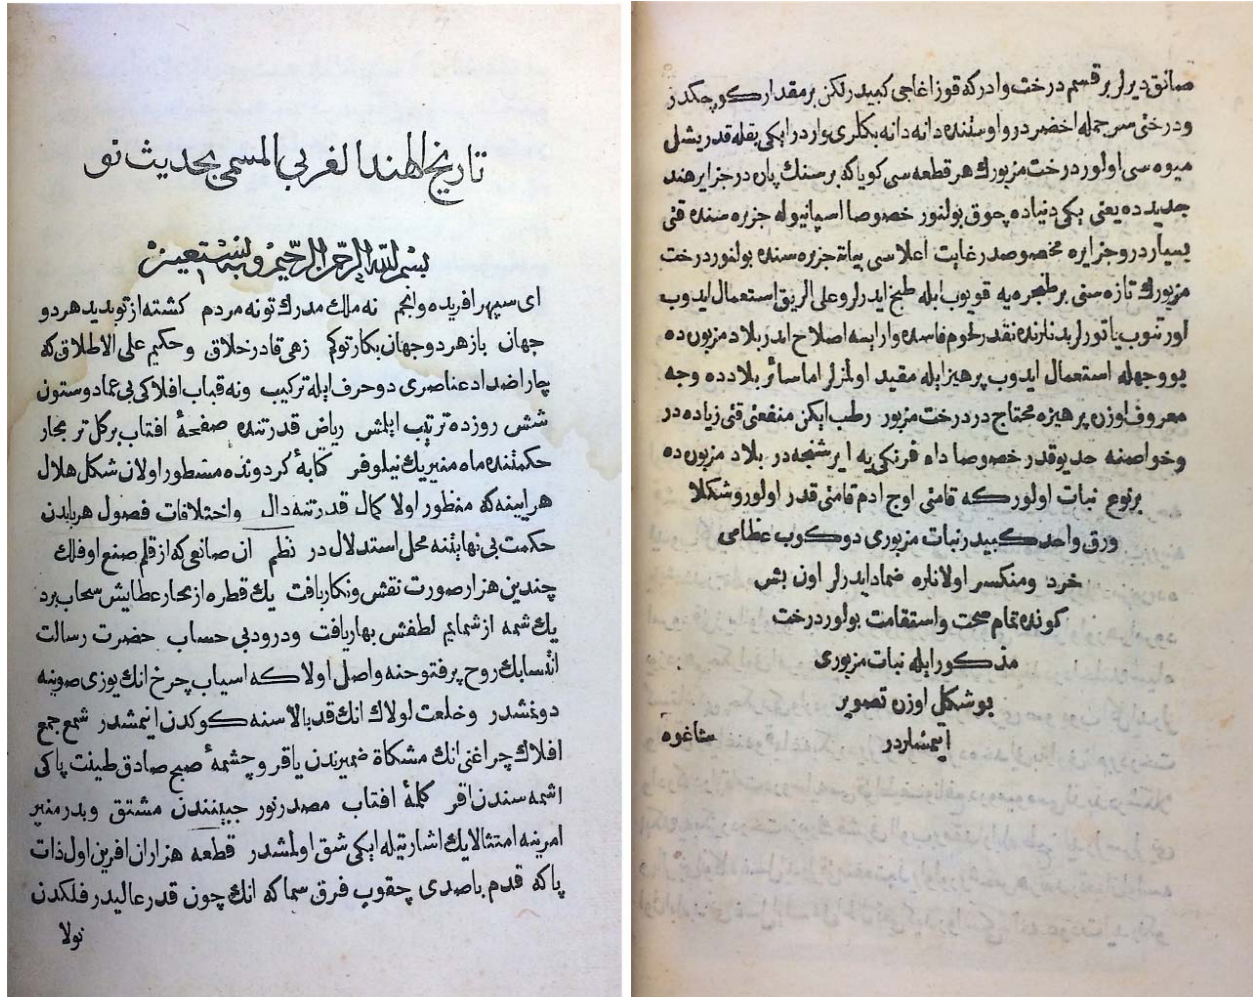 تاريخ الهند الغربى المسمى بحديث نو
بسم الله الرحمن الرحيم وبه نستعين
اى سپهر افريده وانجم نه ملك مدرك تونه مردم كشته از توبديد هردو
جهان باز هردو جهان بكار توكم زهى قادر خلاق وحكيم على الاطلاق كه
چار اضداد عناصرى دو حرف ايله تركيب ونه قباب افلاكى بى عماد وستون
شش روزده ترتيب ايلمش رياض قدرتنده صفحهٔ افتاب بركل تر بحار
حكمتنده ماه منير يك نيلوفر كتابهٔ كردونده مسطور اولان شكل هلال
هرايينه كه منظور اولا كمال قدرتنه دال واختلافات فصول هربابدن
حكمت بى نهايتنه محل استدلال در نظم ان صانعى كه از قلم صنع او فلك
چندين هزار صورت نقش ونكار يافت يك قطره از بحار عطايش سحاب برد
يك شمه از شمايم لطفش بهار يافت ودرود بى حساب حضرت رسالت
انتسابك روح پرفتوحنه واصل اولا كه اسياب چرخ انك يوزى صوينه
دونمشدر وخلعت لولاك انك قد بالاسنه كوكدن اينمشدر شمع جمع
افلاك چراغنى انك مشكاة ضميرندن ياقر وچشمهٔ صبح صادق طينت پاكى
اشمه سندن اقر كلهٔ افتاب مصدر نور جبينندن مشتق وبدر منير
امرينه امتثالا يك اشارتيله ايكى شق اولمشدر قطعه هزاران افرين اول ذات
پاكه قدم باصدى چقوب فرق سماكه انك چون قدر عاليدر فلكدن
نولا
صانق ديرلر بر قسم درخت واردر كه قوز اغاجى كبيدر لكن بر مقدار كوچكدر
ودرختى سر جمله اخضردر واوستنده دانه دانه بكلرى واردر ايكى بقله قدر يشل
ميوه سى اولور درخت مزبورك هر قطعه سى كوياكه بر سنك پاره در جزاير هند
جديدده يعنى يكى دنياده چوق بولنور خصوصا اسپانيوله جزيره سنده قتى
بسياردر وجزايره مخصوصدر غايت اعلاسى بيانه جزيره سنده بولنور درخت
مزبورك تازه سنى بر طنجره يه قويوب ايله طبخ ايدرلر وعلى الريق استعمال ايدوب
اورتنوب ياتورلر بدنلرنده نقدر لحوم فاسده وارايسه اصلاح ايدر بلاد مزبوره ده
بو وجهله استعمال ايدوب پرهيز ايله مقيد اولمزلر اما سائر بلادده وجه
معروف اوزره پرهيزه محتاجدر درخت مزبور رطب ايكن منفعتى قتى زياده در
وخواصنه حد يوقدر خصوصا داء فرنكى يه ايرشنجه در بلاد مزبوره ده
بر نوع نبات اولور كه قامتى اوج ادم قامتى قدر اولور وشكلا
ورق واحد كبيدر نبات مزبورى دوكوب عظامى
خرد ومنكسر اولانلره ضماد ايدرلر اون بش
كونده تمام صحت واستقامت بولور درخت
مذكور ايله نبات مزبورى
بو شكل اوزره تصوير
ايتمشلردر